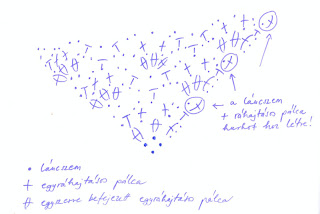 ← a láncszem
+ ráhajtásos pálca
hurkot hoz létre!
• láncszem
egyráhajtásos pálca
egyszerre befejezett egyráhajtásos pálca